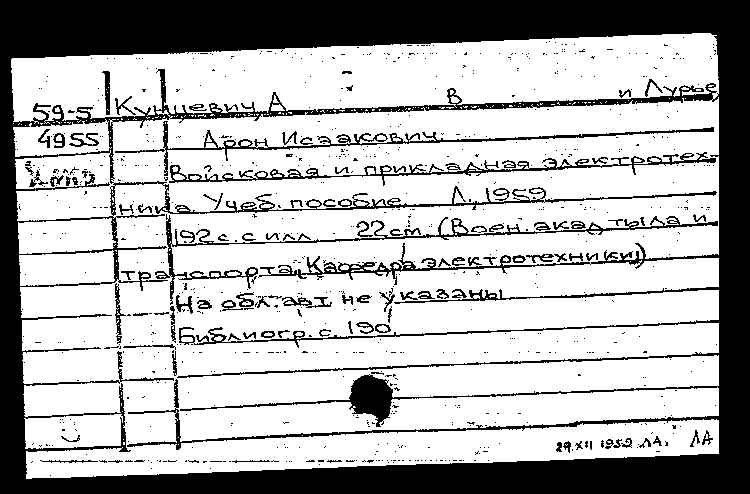 59-5 Кунцевич, А В и Лурье,
4955 Арон Исаакович.
Войсковая и прикладная электротех-
ника. Учеб. пособие. Л., 1959
192 с. с илл. 22 см. (Воен. акад. тыла и
транспорта. Кафедра электротехники)
На обл. авт. не указаны
Библиогр. с. 190.
29.XII 1959 ЛА. ЛА